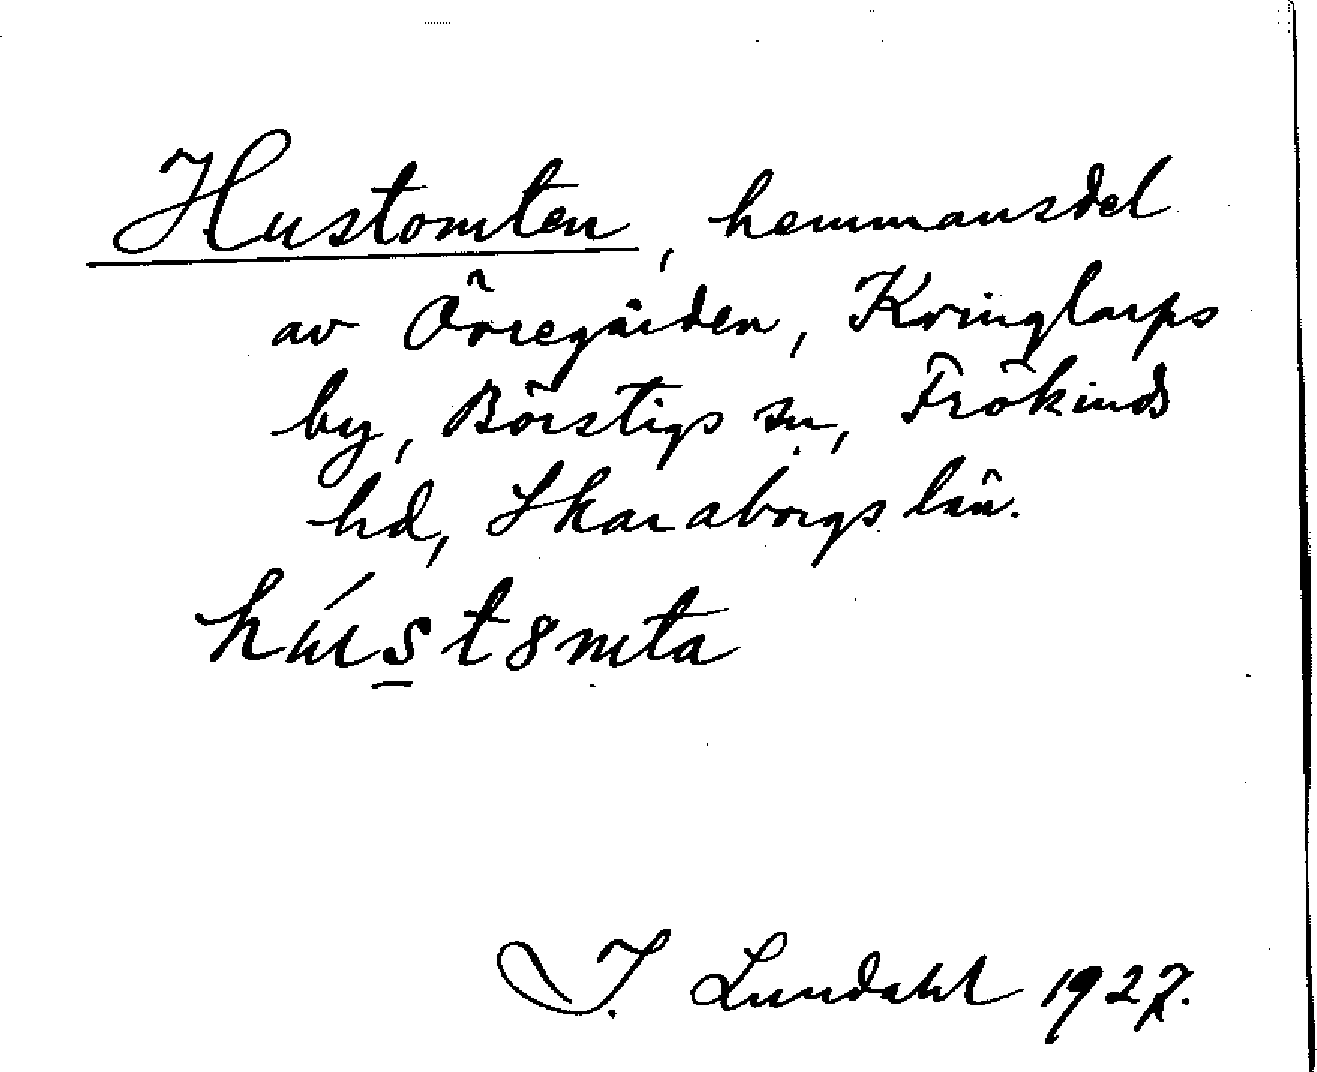 Hustomten, hemmansdel
av Örregården, Kringlarps
by, Börstigs sn, Frökinds
hd, Skaraborgs län.
hús̲t8mta
I. Lundahl 1927.